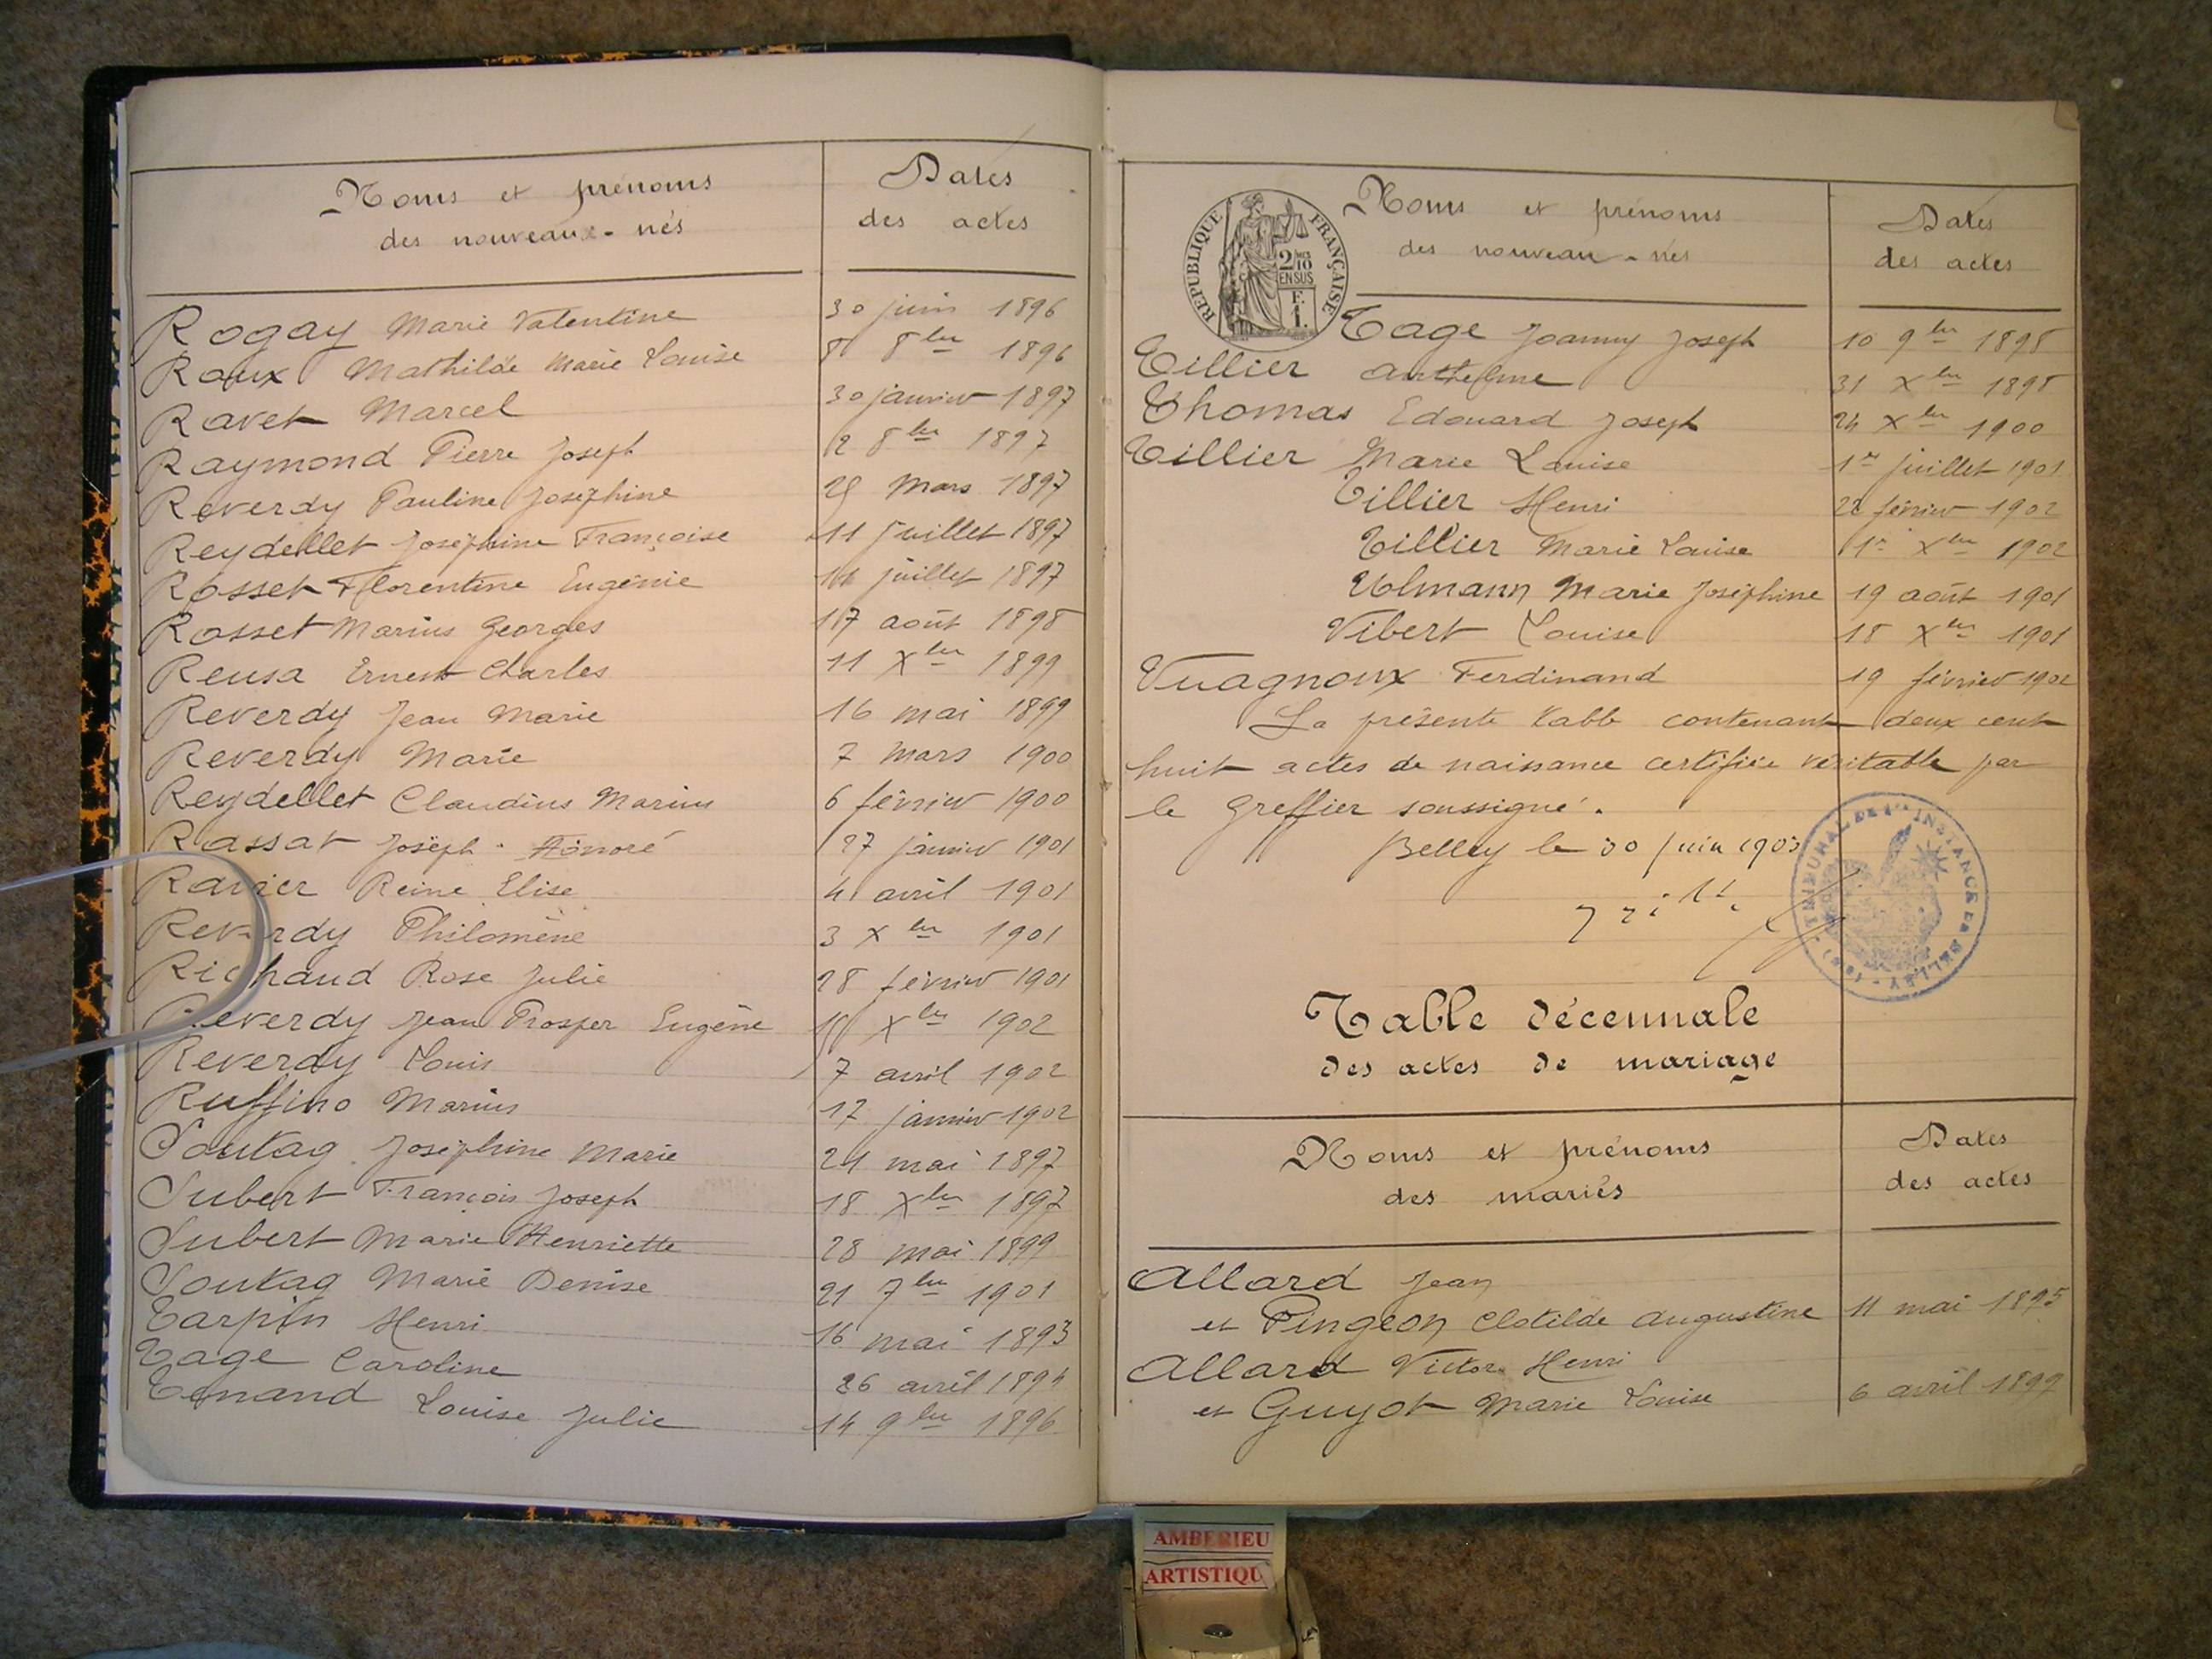 Noms et prénoms
des nouveaux-nés
Dates
des actes
Rogay Marie Valentine 30 juin 1896
Roux Mathilde Marie Louise 8 8bre 1896
Ravet Marcel 30 janvier 1897
Raymond Pierre Joseph 2 8bre 1897
Reverdy Pauline Joséphine 25 mars 1897
Reydellet Joséphine Françoise 11 juillet 1897
Rosset Florentine Eugénie 14 juillet 1897
Rosset Marius Georges 17 août 1898
Reusa Ernest Charles 11 Xbre 1899
Reverdy Jean Marie 16 mai 1899
Reverdy Marie 7 mars 1900
Reydellet Claudius Marius 6 février 1900
Rassat Joseph Honoré 27 janvier 1901
Ravier Reine Elise 4 avril 1901
Reverdy Philomène 3 Xbre 1901
Richaud Rose Julie 28 février 1901
Reverdy Jean Prosper Eugène Xbre 1902
Reverdy Louis 7 avril 1902
Ruffino Marius 17 janvier 1902
Soutag Joséphine Marie 21 mai 1897
Subert François Joseph 18 Xbre 1897
Subert Marie Henriette 28 mai 1899
Soutag Marie Denise 21 7bre 1901
Tarpin Henri 16 mai 1893
Tage Caroline 26 avril 1894
Tenand Louise Julie 14 9bre 1896
REPUBLIQUE FRANÇAISE
2/10
EN SUS
F.
1.
Noms et prénoms
des nouveau-nés
Dates
des actes
Tage Joanny Joseph 10 9bre 1898
Tillier Anthelme 31 Xbre 1898
Thomas Edouard Joseph 24 Xbre 1900
Tillier Marie Louise 1er juillet 1901
Tillier Henri 22 février 1902
Tillier Marie Louise 1er Xbre 1902
Ulmann Marie Joséphine 19 août 1901
Vibert Louise 18 Xbre 1901
Vuagnoux Ferdinand 19 février 1902
La présente table contenant deux cent
huit actes de naissance certifiée véritable par
le Greffier soussigné.
Belley le 30 juin 1903
TRIBUNAL DE 1ère INSTANCE DE BELLEY (AIN)
Table décennale
des actes de mariage
Noms et prénoms
des mariés
Dates
des actes
Allard Jean
et Pingeon Clotilde Augustine 11 mai 1895
Allard Victor Henri
et Guyot Marie Louise 6 avril 1899
AMBERIEU
ARTISTIQU